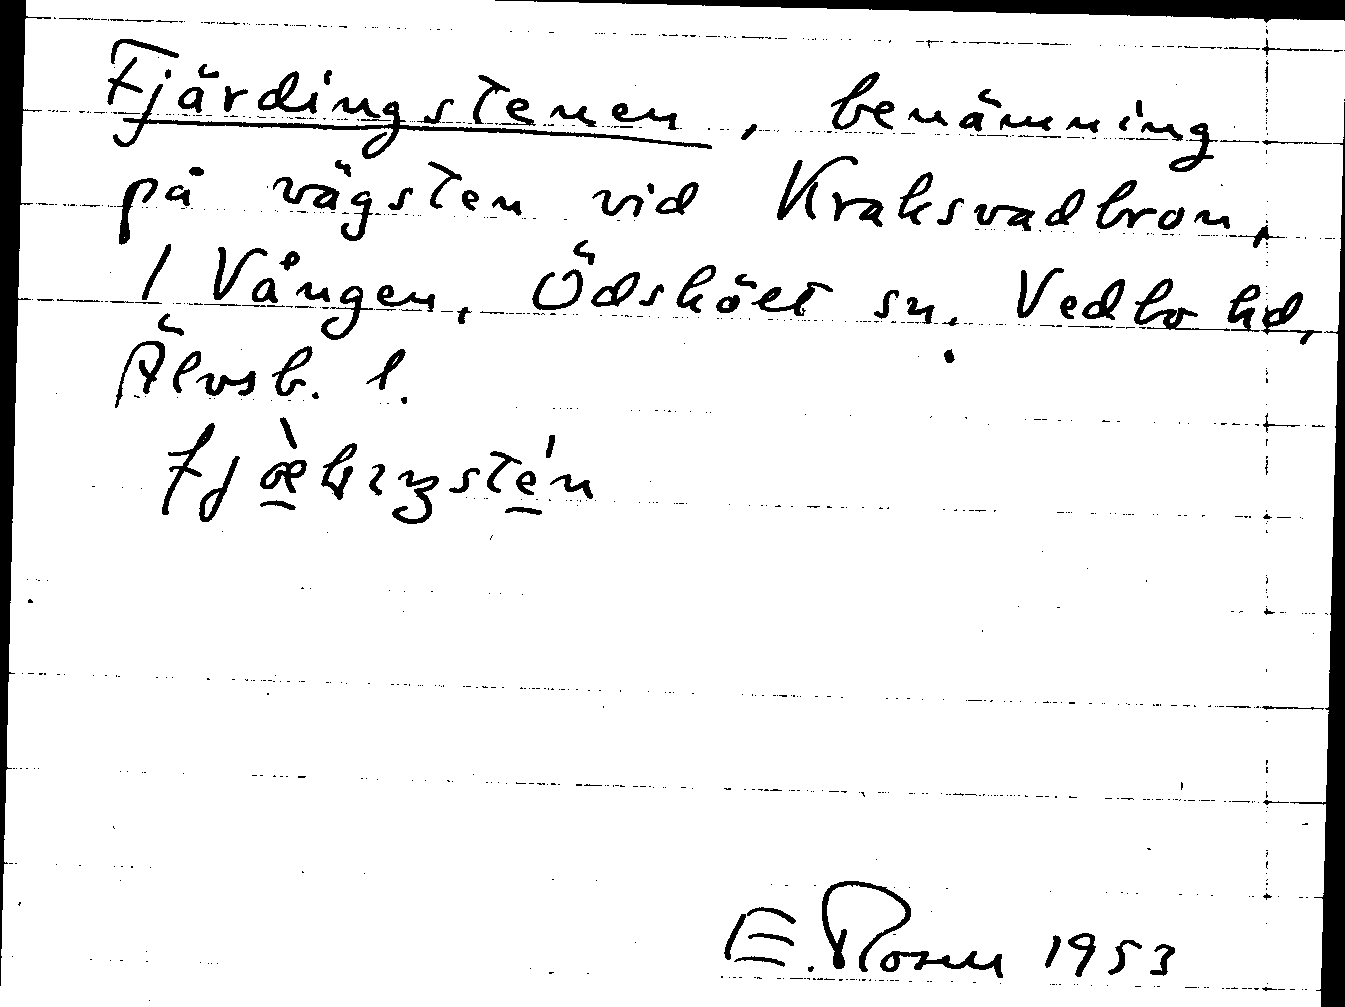 Fjärdingstenen, benämning
på vägsten vid Kraksvadbron,
1 Vången, Ödsköet sn. Vedbo hd,
Älvsb. l.
E. Rosen 1953